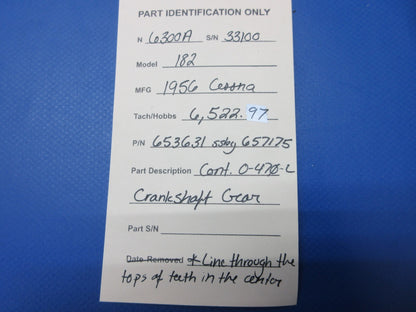 PART IDENTIFICATION ONLY
N 6300A S/N 33100
Model 182
MFG 1956 Cessna
Tach/Hobbs 6,522.97
P/N 653631 ssby 657175
Part Description Cont. O-470-L
Crankshaft Gear
Part S/N
Date Removed * Line through the
tops of teeth in the center